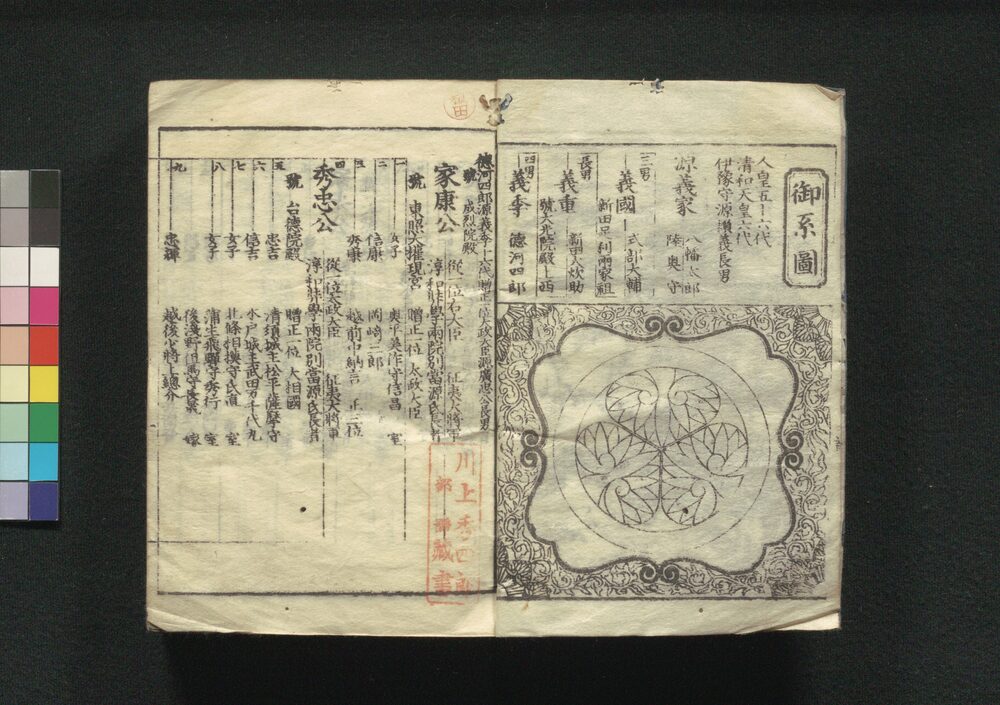 御系圖
人皇五十六代
清和天皇六代
伊豫守源頼義長男
源義家 八幡太郎
陸奥守
三男
義國 式部大輔
新田足利兩家祖
長男
義重 新田大炊助
號大光院殿
四男
義季 德河四郎
德河四郎源義季
贈正一位太政大臣源廣忠公長男
號 成烈院殿
家康公 從一位右大臣 征夷大將軍
淳和奨學兩院別當源氏長者
號 東照大權現宮 贈正一位 太政大臣
一 女子 奥平美作守信昌 室
二 信康 岡崎三郎
三 秀康 越前中納言 正三位
四
秀忠公 從一位太政大臣 征夷大將軍
淳和奨學兩院別當源氏長者
號 台德院殿 贈正一位 大相國
五 忠吉 清須城主松平薩摩守
六 信吉 水戸城主武田万千代丸
七 女子 北條相摸守氏直 室
八 女子 蒲生飛驒守秀行 室
後淺野但馬守長晟 嫁
九 忠輝 越後少將上總介
川上
藏書